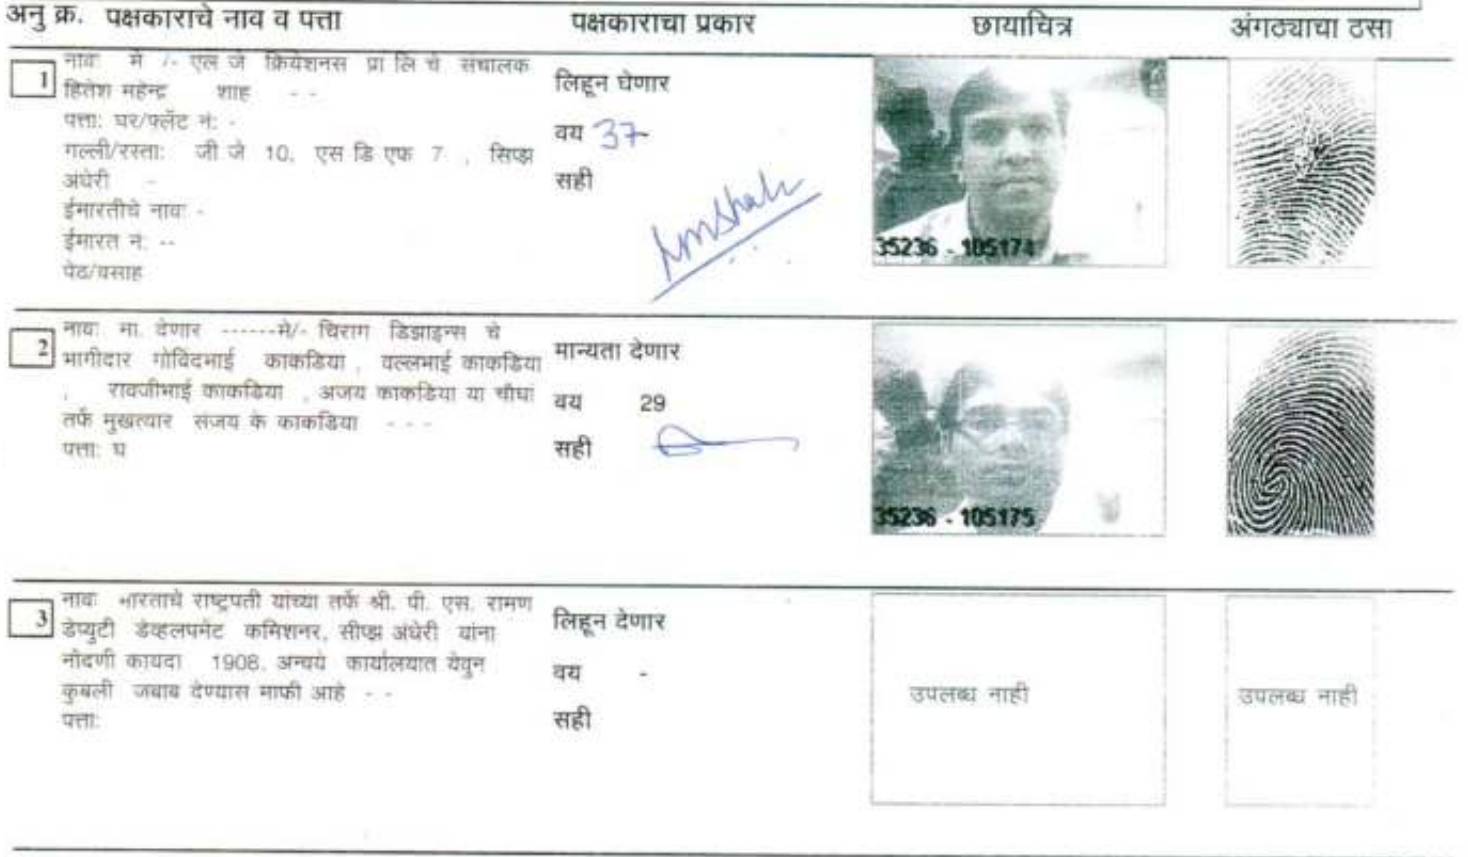 अनु क्र. पक्षकाराचे नाव व पत्ता पक्षकाराचा प्रकार छायाचित्र अंगठ्याचा ठसा
1 नावः मे /- एल जे क्रियेशनस प्रा लि चे संचालक
हितेश महेन्द्र शाह - -
पत्ता: घर/फ्लॅट नं: -
गल्ली/रस्ता: जी जे 10, एस डि एफ 7 , सिप्झ
अंधेरी -
ईमारतीचे नावः -
ईमारत नं: --
पेठ/वसाह
लिहून घेणार
वय 37
सही
35236 - 105174
2 नावः मा. देणार ------मे/- चिराग डिझाइन्स चे
भागीदार गोविंदभाई काकडिया , वल्लभाई काकडिया
, रावजीभाई काकडिया , अजय काकडिया या चौघां
तर्फे मुखत्यार संजय के काकडिया - - -
पत्ता: घ
मान्यता देणार
वय 29
सही
35236 - 105175
3 नावः भारताचे राष्ट्रपती यांच्या तर्फे श्री. पी. एस. रामण
डेप्युटी डेव्हलपमेंट कमिशनर, सीप्झ अंधेरी यांना
नोंदणी कायदा 1908, अन्वये कार्यालयात येवुन
कुबली जबाब देण्यास माफी आहे - -
पत्ता:
लिहून देणार
वय -
सही
उपलब्ध नाही
उपलब्ध नाही